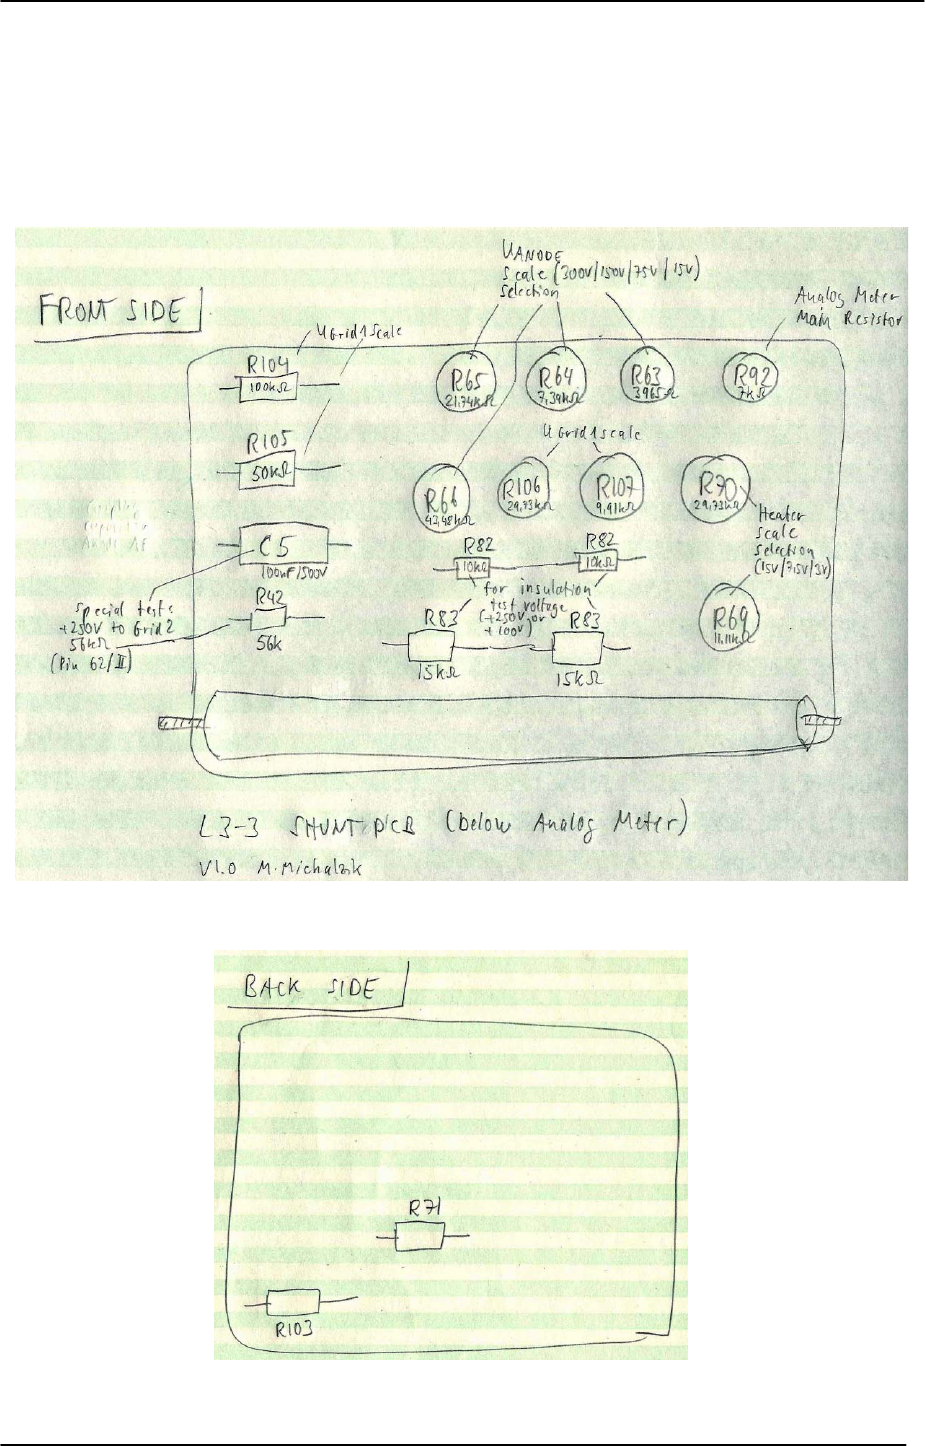 UANODE
Scale (300V/150V/75V/15V)
Selection
FRONT SIDE
Analog Meter
Main Resistor
UGrid1Scale
R104
100kΩ
R65
21,74kΩ
R64
7,39kΩ
R63
3965Ω
R92
7kΩ
UGrid1scale
R105
50kΩ
R66
43,48kΩ
R106
29,73kΩ
R107
9,91kΩ
R70
29,73kΩ
Heater
Scale
Selection
(15V/7,5V/3V)
C5
100nF/1500V
R82
10kΩ
R82
10kΩ
for insulation
test voltage
(+250V or
+100V)
Special test:
+250V to Grid2
56kΩ
(Pin 62/II)
R42
56k
R83
15kΩ
R83
15kΩ
R69
11,11kΩ
L3-3 SHUNT PCB (below Analog Meter)
V1.0 M.Michalzik
BACK SIDE
R71
R103